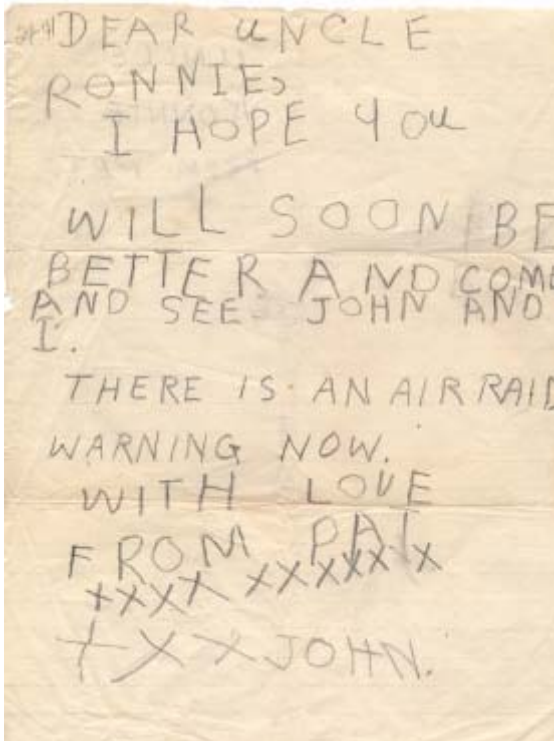 DEAR UNCLE
RONNIE,
I HOPE YOU
WILL SOON BE
BETTER AND COME
AND SEE JOHN AND
I.
THERE IS AN AIR RAID
WARNING NOW.
WITH LOVE
FROM PAT
XXXX XXXXXX
XXX JOHN.